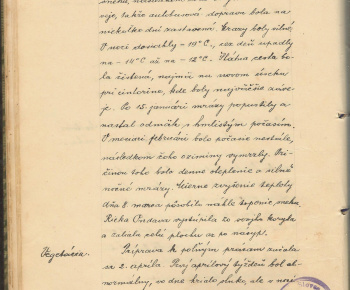 snehu, 
voje, takže autobusová doprava bola na
niekoľko dní zastavená. Mrazy boly silné,
V noci dosiahly -19°C, cez deň upadly
na -14°C až na -12°C. Hlavná cesta bo-
la čistená, najmä na novom úseku
pri cintoríne, kde boly najväčšie záve-
je. Po 15. januári mrazy popustily a
nastal odmäk s hmlistým počasím
V mesiaci februári bolo počasie nestále,
následkom čoho oziminy vymrzly. Prí-
činou toho bolo denné oteplenie a silné
nočné mrazy. Mierne zvýšenie teploty
dňa 8. marca pôsobilo náhle topenie snehu.
Rieka Ondava vystúpila zo svojho koryta
a zaliala celú plochu až po násyp.
Vegetácia.
Príprava k poľným prácam začala
sa 2. apríla. Prvý aprílový týždeň bol ab-
normálny, vo dne hrialo slnko, ale v noci